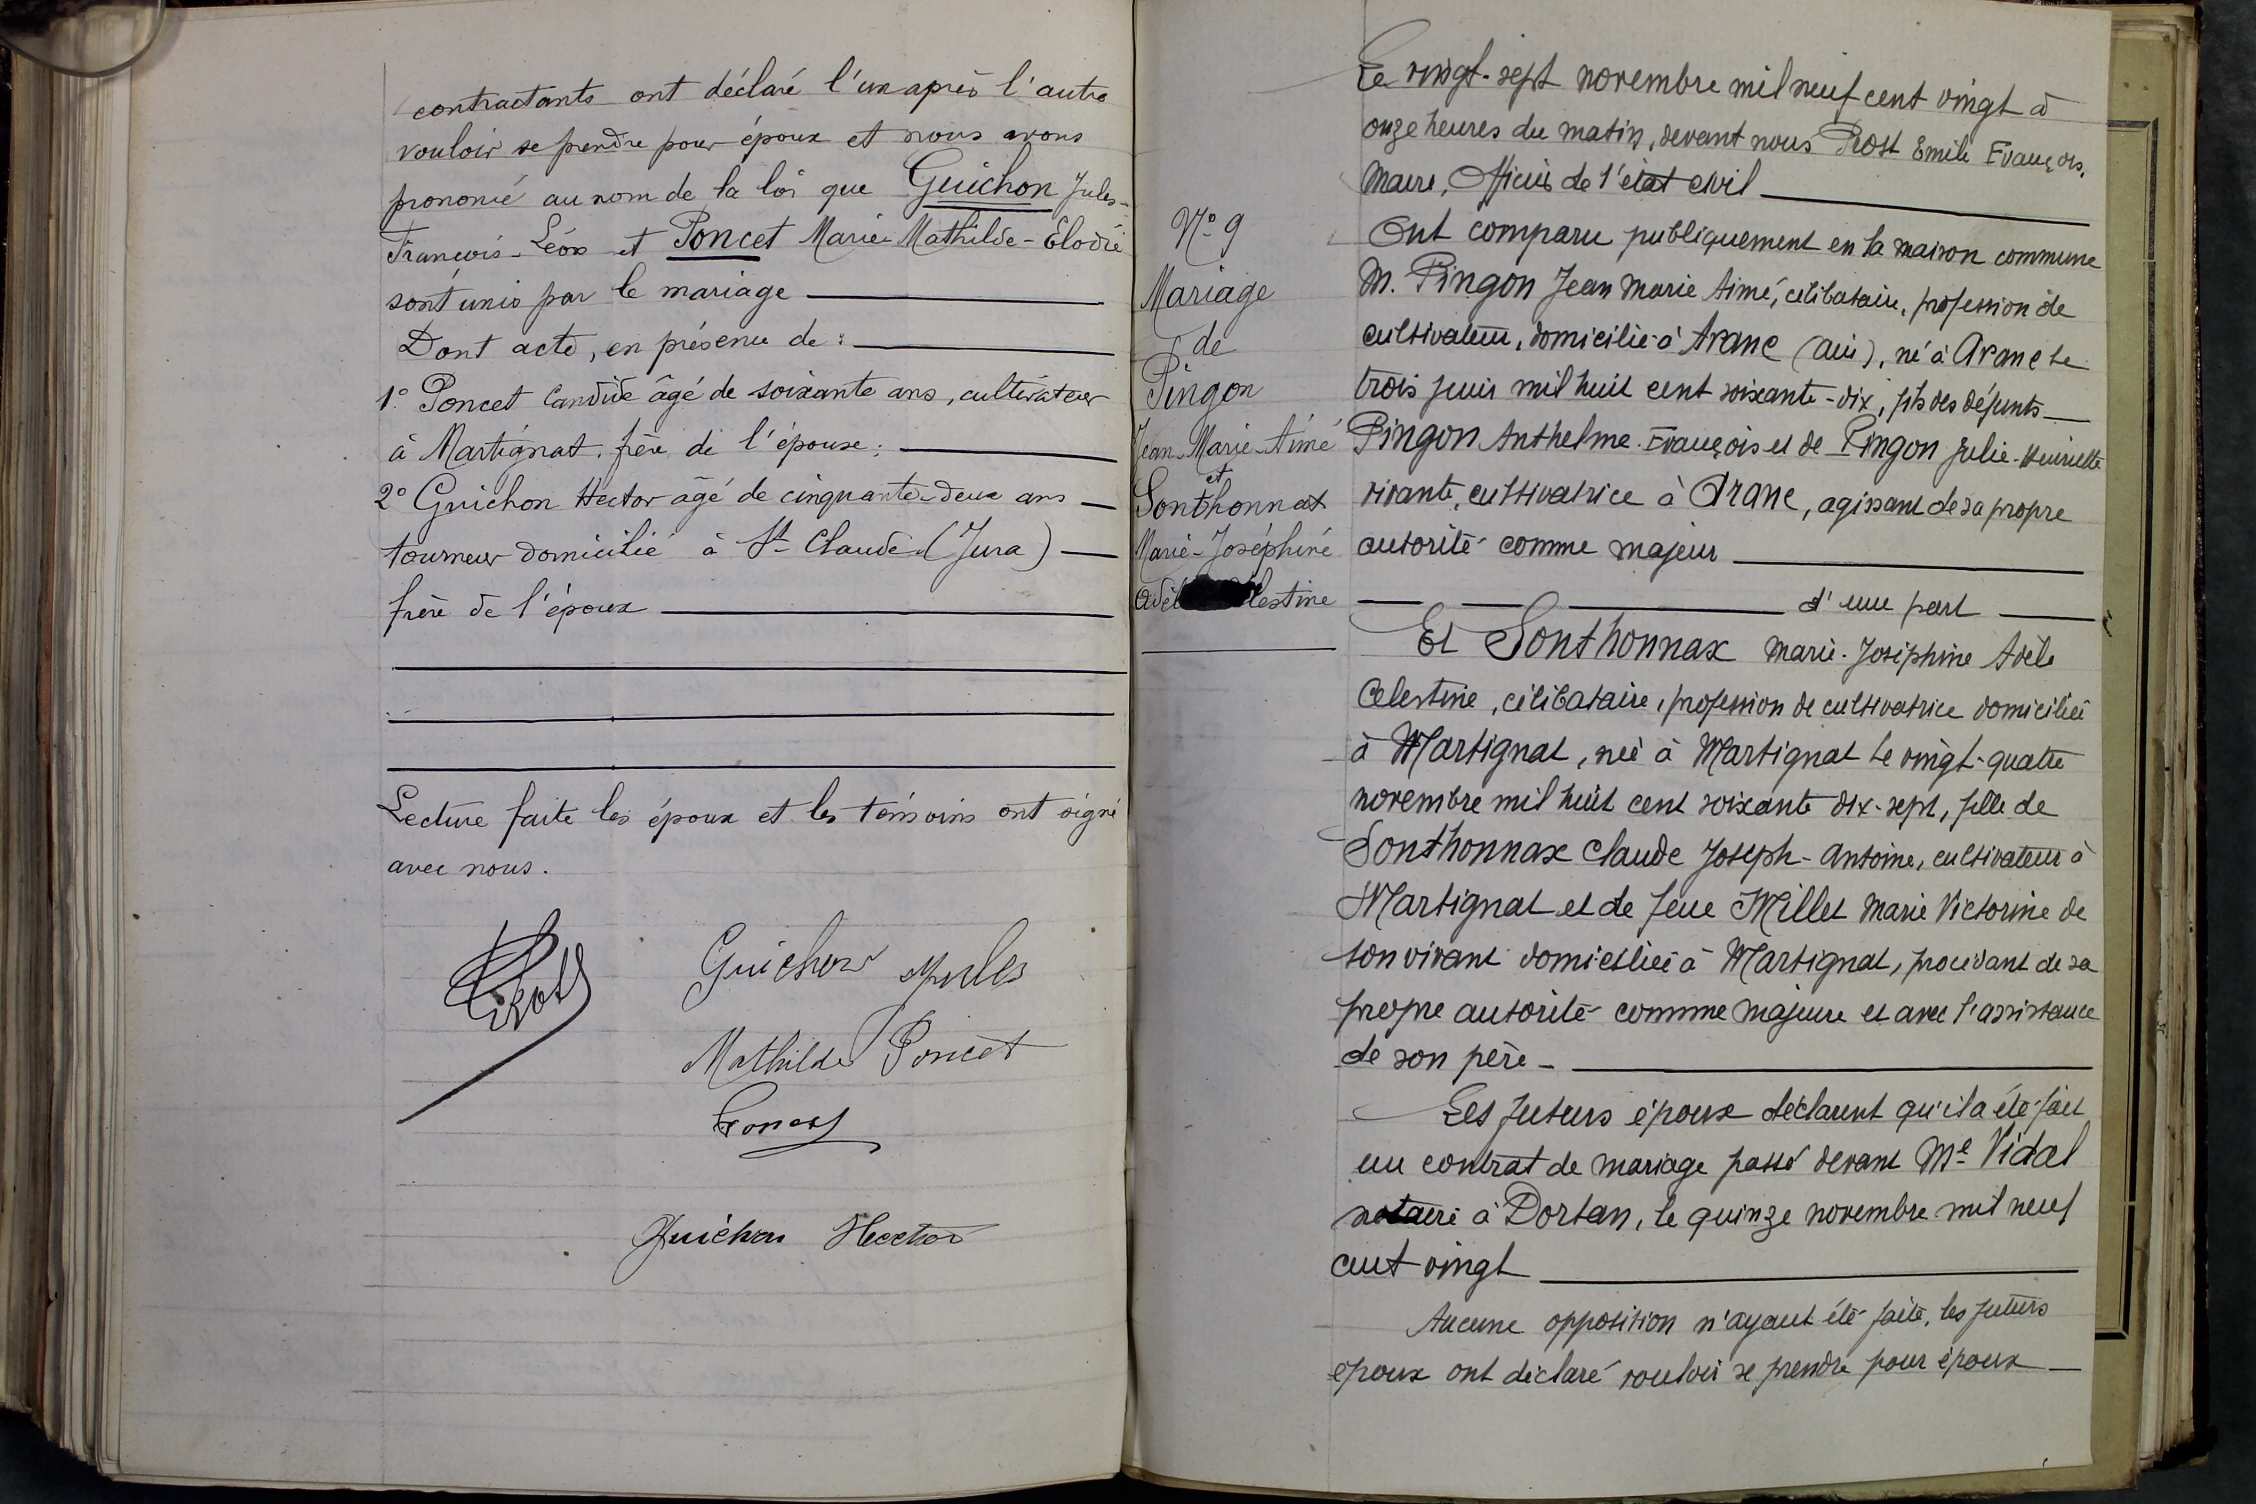 contractants ont déclaré l'un après l'autre
vouloir se prendre pour époux et nous avons
prononcé au nom de la loi que Guichon Jules-
François-Léon et Poncet Marie-Mathilde-Elodie
sont unis par le mariage
Dont acte, en présence de :
1° Poncet Candide âgé de soixante ans, cultivateur
à Martignat, frère de l'épouse ;
2° Guichon Hector âgé de cinquante-deux ans
tourneur domicilié à St-Claude (Jura)
frère de l'époux
Lecture faite les époux et les témoins ont signé
avec nous.
Guichon Jules
Mathilde Poncet
Poncet
Guichon Hector
N° 9
Mariage
de
Pingon
Jean-Marie-Aimé
et
Sonthonnax
Marie-Joséphine
Le vingt-sept novembre mil neuf cent vingt à
onze heures du matin, devant nous Prost Emile François,
Maire, Officier de l'état civil
Ont comparu publiquement en la maison commune
M. Pingon Jean Marie Aimé, célibataire, profession de
cultivateur, domicilié à Aranc (Ain), né à Aranc le
trois juin mil huit cent soixante-dix, fils des défunts
Pingon Anthelme-François et de Pingon Julie-Henriette
vivante, cultivatrice à Aranc, agissant de sa propre
autorité comme majeur
d'une part
Et Sonthonnax Marie-Joséphine Adèle
Célestine, célibataire, profession de cultivatrice domiciliée
à Martignat, née à Martignat le vingt-quatre
novembre mil huit cent soixante dix-sept, fille de
Sonthonnax Claude Joseph-Antoine, cultivateur à
Martignat et de feue Millet Marie Victorine de
son vivant domiciliée à Martignat, procédant de sa
propre autorité comme majeure et avec l'assistance
de son père -
Les futurs époux déclarent qu'il a été fait
un contrat de mariage passé devant Me Vidal
notaire à Dortan, le quinze novembre mil neuf
cent vingt
Aucune opposition n'ayant été faite, les futurs
époux ont déclaré vouloir se prendre pour époux